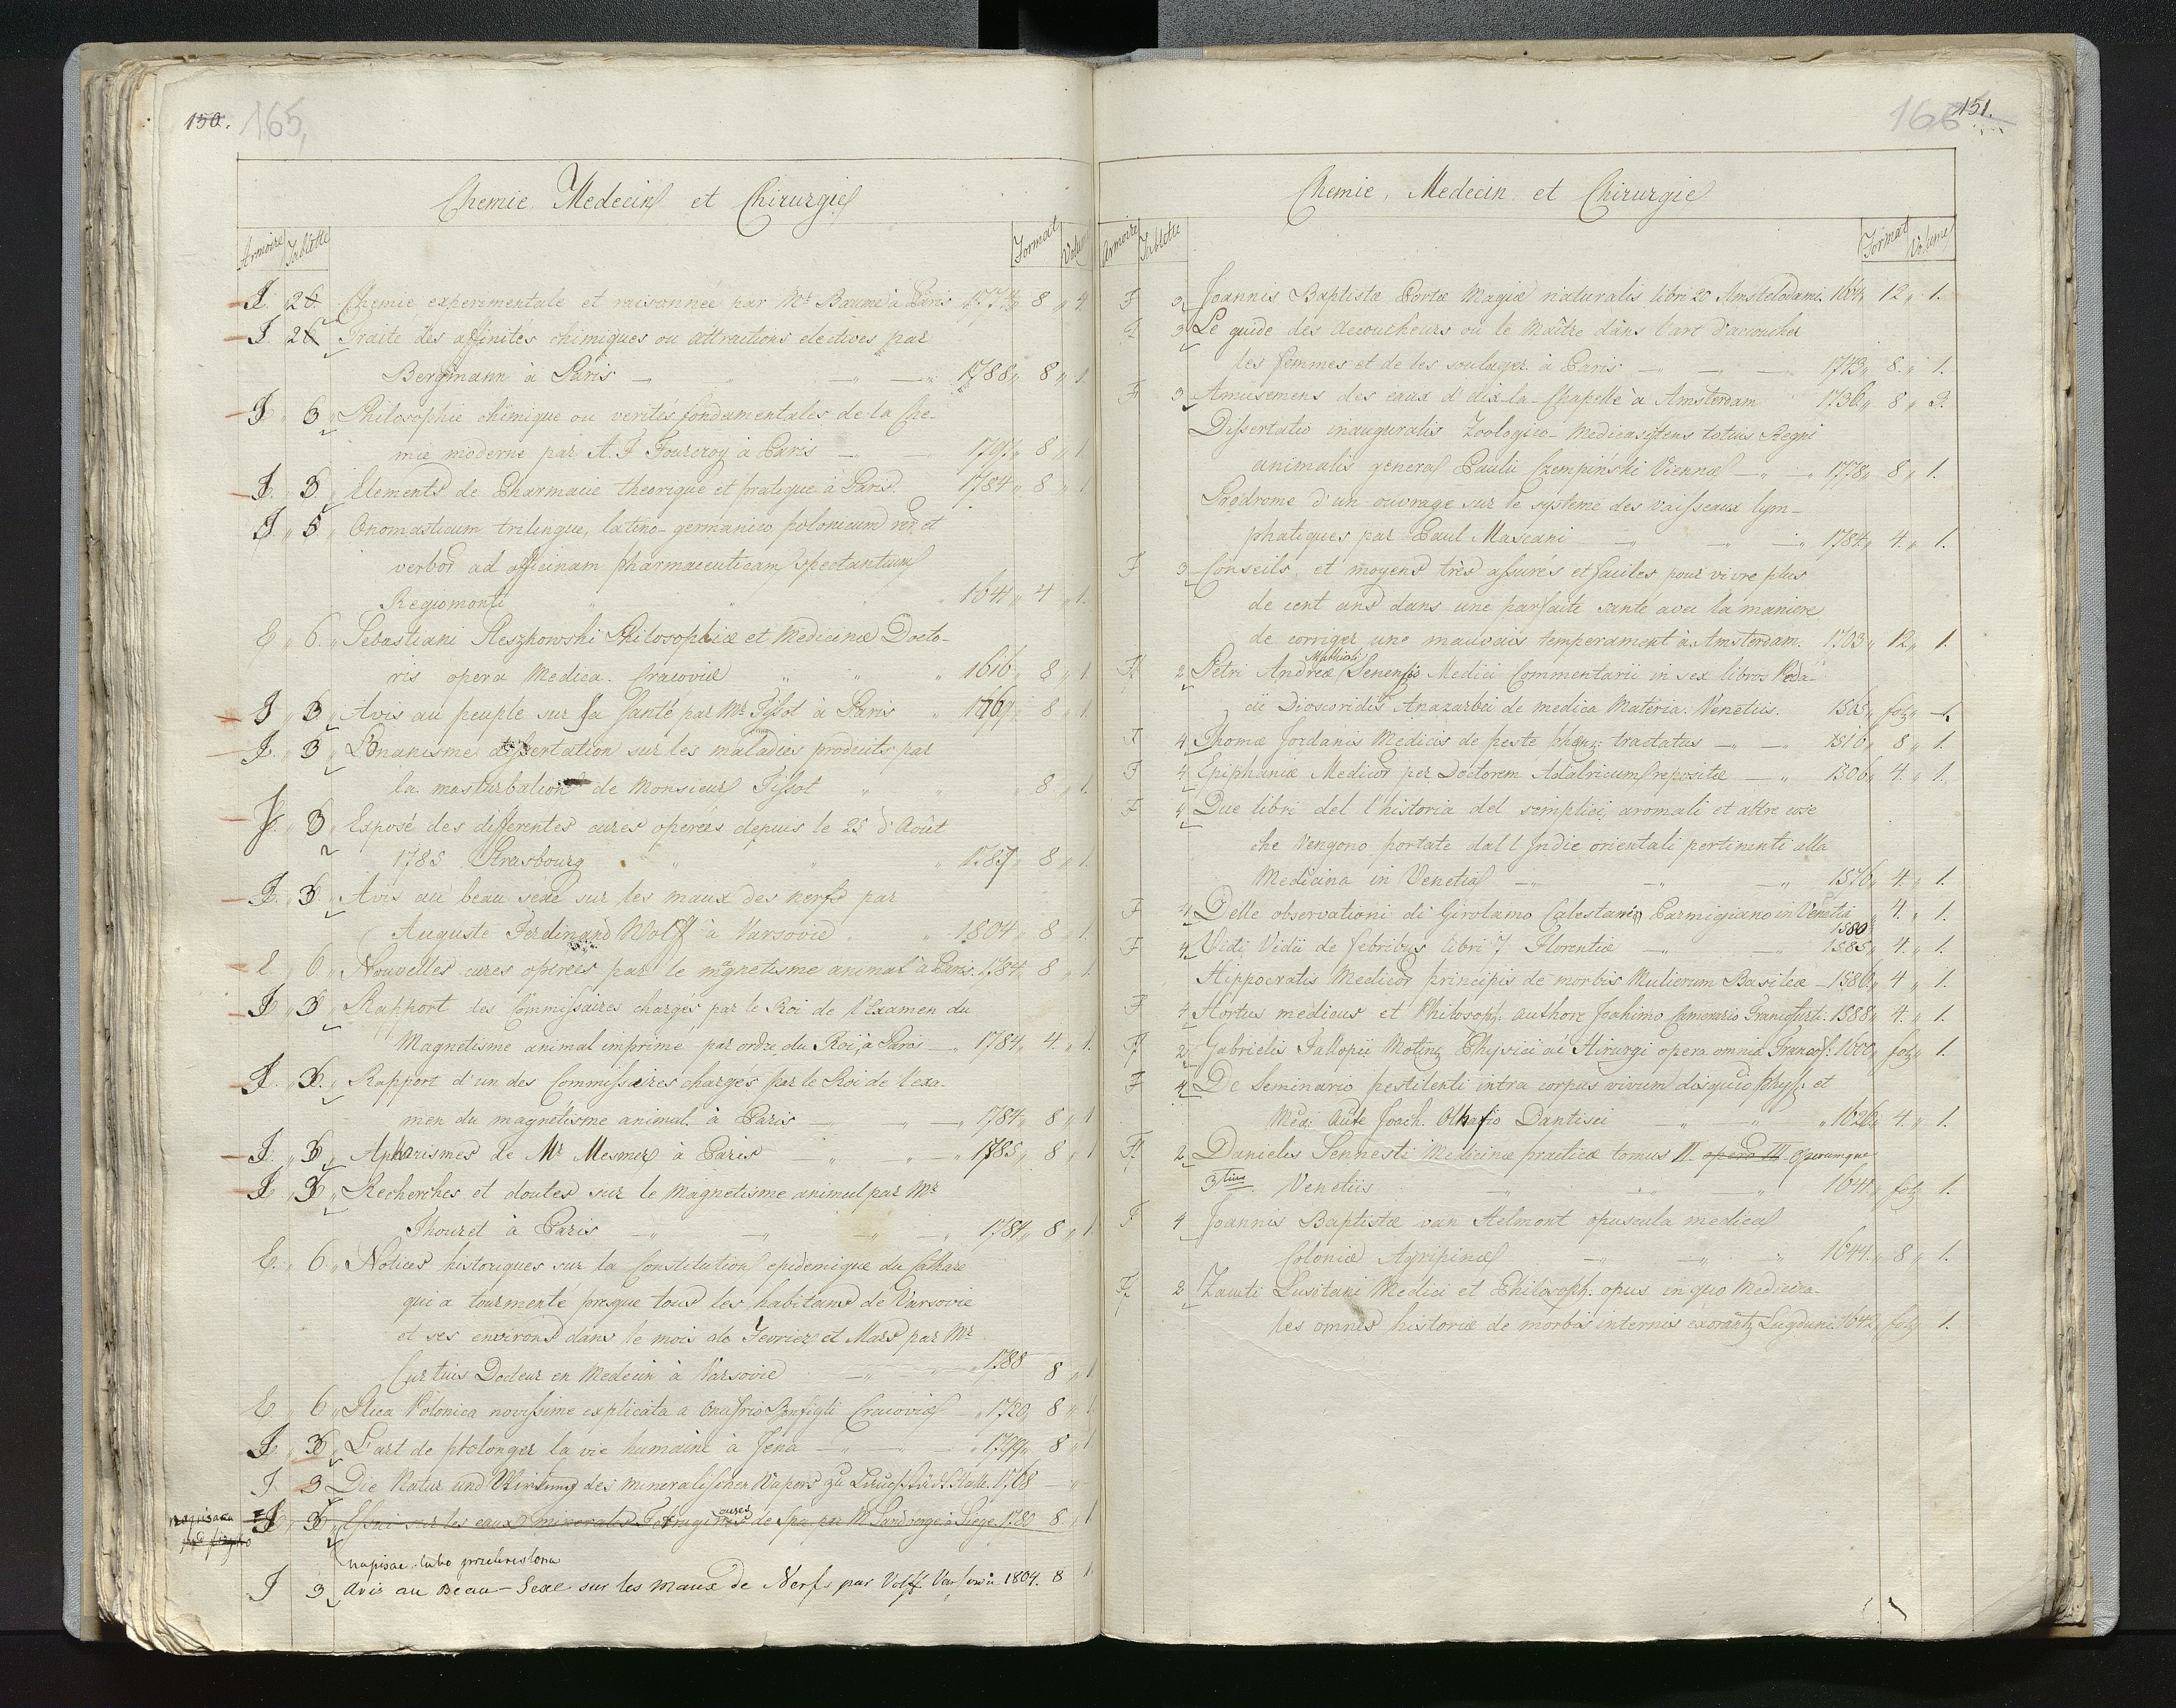 150. 165,
Chemie Medecin et Chirurgie
Armoire Tablette Format Volum
J. 26. Chemie experimentale et raisonnée par Mr Baumé à Paris 1773 8 4.
J. 26 Traité des affinités chimiques ou attractions electives par
Bergmann à Paris 1788 8 1.
J 3 Philosophie chimique ou verités fondamentales de la Che-
mie moderne par A. F Fourcroy à Paris 1797 8 1
J. 3 Elements de Pharmacie theorique et pratique à Paris. 1784 8 1
J 5 Onomasticum trilingue, latino-germanico polonicum rer. et
verbor ad officinam pharmaceuticam spectantium
Regiomonti 1641 4 1.
E 6. Sebastiani Sleszkowski Philosophiæ et Medicinæ Docto-
ris opera Medica. Cracoviæ 1616 8 1
J 3 Avis au peuple sur sa santé par Mr Tissot à Paris 1769 8 1.
J. 3 L'Onanisme dissertation sur les maladies produits par
la masturbation de Monsieur Tissot 8 1.
J. 3 Exposé des differentes cures operées depuis le 25 d'Août
1785 Strasbourg 1787 8 1.
J. 3. Avis au beau sexe sur les maux des nerfs par
Auguste Ferdinand Wolff à Varsovie 1804 8 1.
E 6. Nouvelles cures opérées par le magnetisme animal à Paris. 1784 8 1
J. 3 Rapport des Commissaires chargés par le Roi de l'Examen du
Magnetisme animal imprimé par ordre du Roi, à Paris 1784 4. 1.
J. 3. Rapport d'un des Commissaires charges par le Roi de l'exa-
men du magnétisme animal à Paris 1784 8 1
J. 3 Aphorismes de Mr Mesmer à Paris 1785 8 1
J. 3 Recherches et doutes sur le Magnetisme animal par Mr
Thouret à Paris 1784 8 1
E. 6 Notices historiques sur la Constitution epidemique du Cathare
qui a tourmenté presque tous les habitans de Varsovie
et ses environs dans le mois de Fevrier et Mars par Mr
Curtius Docteur en Medecin à Varsovie 1788 8 1
E 6 Plica Polonica novissime explicata a Onufrio Bonfigli Cracoviæ 1720 8 1
J. 3 L'art de prolonger la vie humaine à Jena 1799 8 1
J. 3 Die Natur und Wirkung des mineralischen Wassers zu Halle. 1768
napisana J 3 Essai sur les eaux minerales Ferrugineuses de Spa par M Sandberge à Liège 1780 8 1
napisac
J 3 Avis au Beau-Sexe sur les maux de Nerfs par Volff Varsovie 1804. 8 1
166 151.
Chemie, Medecin et Chirurgie
Armoire Tablette Format Volume
F 3 Joannis Baptistæ Portæ Magiæ naturalis libri 20 Amstelodami. 1664 12 1.
F 3 Le guide des Accoucheurs ou le Maître dans l'art d'accoucher
les femmes et de les soulager à Paris 1743 8. 1.
F 3 Amusemens des eaux d'Aix-la-Chapelle à Amsterdam 1736 8 3.
Dissertatio inauguralis Zoologico-Medica sistens totius Regni
animalis genera Pauli Czempiński Viennæ 1778 8 1.
Prodrome d'un ouvrage sur le systeme des vaisseaux lym-
phatiques par Paul Mascani 1784 4. 1.
F 3 Conseils et moyens très assurés et faciles pour vivre plus
de cent ans dans une parfaite santé avec la maniere
de corriger une mauvais temperament à Amsterdam. 1703 12 1.
Mathioli
F 2 Petri Andreæ Senensis Medici Commentarii in sex libros Peda-
cii Dioscoridis Anazarbei de medica Materia. Venetiis. 1565 fol 1.
F 4 Thomæ Jordanis Medicis de peste phænz: tractatus 1516 8 1.
F 4 Epiphaniæ Medicor per Doctorem Adalricum repositæ 1506 4. 1.
F 4 Due libri del l'historia del semplici, aromati et altre cose
che Vengono portate dall Indie orientali pertinenti alla
Medicina in Venetia 1576 4. 1.
F 4 Delle observationi di Girolamo Calestani Parmigiano in Venetia 1580 4. 1.
F 4 Vidi Vidii de febribus libri 7. Florentiæ 1585 4. 1.
Hippocratis Medicor principis de morbis Mulierum Basileæ 1586 4 1.
F 4 Hortus medicus et Philosoph: authore Joahimo Camerario Francofurti. 1588 4. 1.
F 2 Gabrielis Fallopii Motinz Physici ac Hirurgi opera omnia Francof: 1600 fol 1.
F 4 De Seminario pestilenti intra corpus vivum disquio phys. et
Medi Aute Joach. Olhafio Dantisci 1626 4. 1.
F 2 Danieles Sennesti Medicinæ practicæ tomus II opera III Operumque
3tius Venetiis 1641 fol 1.
F 4 Joannis Baptistæ van Helmont opuscula medica
Coloniæ Agripinæ 1644. 8 1.
F 2 Zacuti Lusitani Medici et Philosoph: opus in quo Medicina-
les omnes historiæ de morbis internis exorantz Lugduni 1642 fol 1.